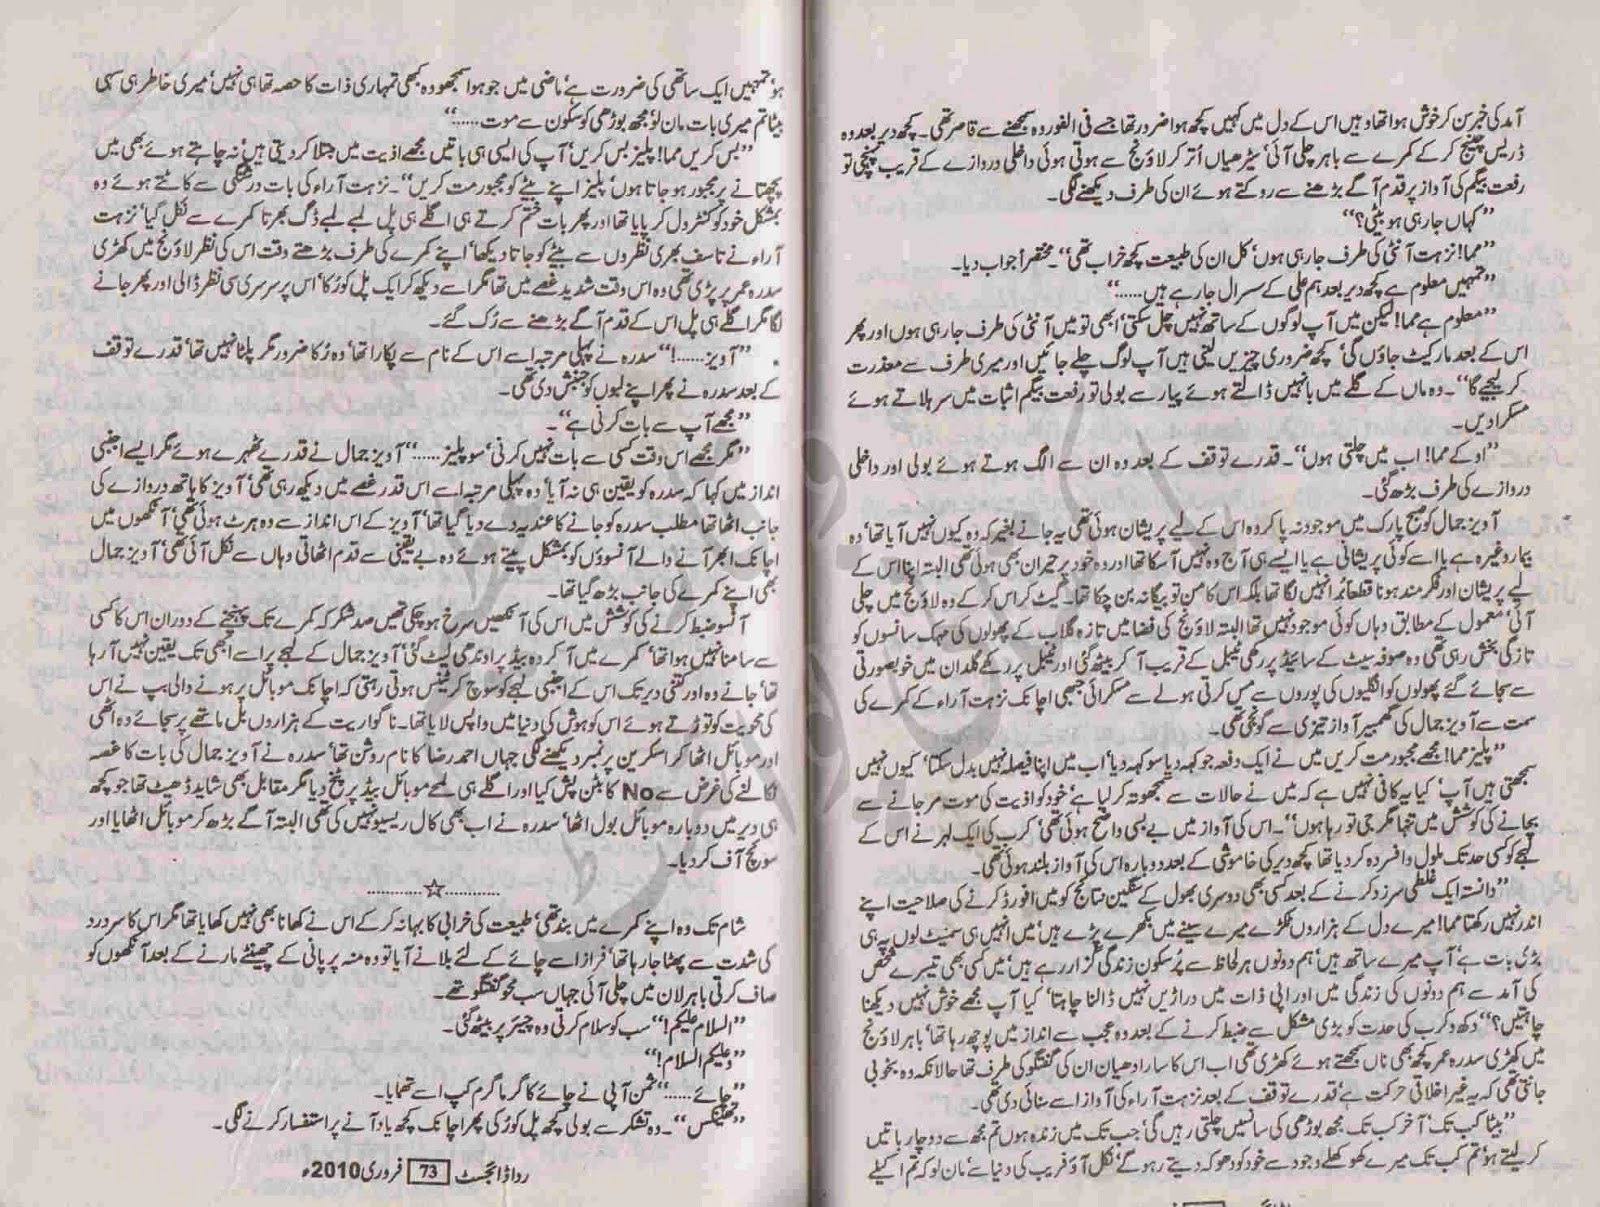 آمد کی خبر سن کر خوش ہوا تھا وہیں اس کے دل میں کہیں کچھ ہوا ضرور تھا جسے فی الفور وہ سمجھنے سے قاصر تھی۔ کچھ دیر بعد وہ
ڈریس چینج کر کے کمرے سے باہر چلی آئی‘ سیڑھیاں اُتر کر لاؤنج سے ہوتی ہوئی داخلی دروازے کے قریب پہنچی تو
رفعت بیگم کی آواز پر قدم آگے بڑھنے سے روکتے ہوئے ان کی طرف دیکھنے لگی۔
’’کہاں جا رہی ہو بیٹی؟‘‘
’’مما! نزہت آنٹی کی طرف جا رہی ہوں‘ کل ان کی طبیعت کچھ خراب تھی‘‘۔ مختصراً جواب دیا۔
’’تمہیں معلوم ہے کچھ دیر بعد ہم علی کے سسرال جا رہے ہیں......‘‘
’’معلوم ہے مما! لیکن میں آپ لوگوں کے ساتھ نہیں چل سکتی‘ ابھی تو میں آنٹی کی طرف جا رہی ہوں اور پھر
اس کے بعد مارکیٹ جاؤں گی‘ کچھ ضروری چیزیں لینی ہیں آپ لوگ چلے جائیں اور میری طرف سے معذرت
کر لیجیے گا‘‘۔ وہ ماں کے گلے میں بانہیں ڈالتے ہوئے پیار سے بولی تو رفعت بیگم اثبات میں سر ہلاتے ہوئے
مسکرا دیں۔
’’اوکے مما! اب میں چلتی ہوں‘‘۔ قدرے توقف کے بعد وہ ان سے الگ ہوتے ہوئے بولی اور داخلی
دروازے کی طرف بڑھ گئی۔
آویز جمال کو صبح پارک میں موجود نہ پا کر وہ اس کے لیے پریشان ہوئی تھی یہ جانے بغیر کہ وہ کیوں نہیں آیا تھا‘ وہ
بیمار وغیرہ ہے یا اسے کوئی پریشانی ہے یا ایسے ہی آج وہ نہیں آ سکا تھا اور وہ خود پر حیران بھی ہوئی تھی البتہ اپنا اس کے
لیے پریشان اور فکرمند ہونا قطعاً بُرا نہیں لگا تھا بلکہ اس کا من تو بیگانہ بن چکا تھا۔ گیٹ کراس کر کے وہ لاؤنج میں چلی
آئی‘ معمول کے مطابق وہاں کوئی موجود نہیں تھا البتہ لاؤنج کی فضا میں تازہ گلاب کے پھولوں کی مہک سانسوں کو
تازگی بخش رہی تھی وہ صوفہ سیٹ کے سائیڈ پر رکھی ٹیبل کے قریب آ کر بیٹھ گئی اور ٹیبل پر رکھے گلدان میں خوبصورتی
سے سجائے گئے پھولوں کو انگلیوں کی پوروں سے مس کرتی ہولے سے مسکرائی جبھی اچانک نزہت آراء کے کمرے کی
سمت سے آویز جمال کی گھمبیر آواز تیزی سے گونجی تھی۔
’’پلیز مما! مجھے مجبور مت کریں میں نے ایک دفعہ جو کہہ دیا سو کہہ دیا‘ اب میں اپنا فیصلہ نہیں بدل سکتا‘ کیوں نہیں
سمجھتی ہیں آپ‘ کیا یہ کافی نہیں ہے کہ میں نے حالات سے سمجھوتہ کر لیا ہے‘ خود کو اذیت کی موت مر جانے سے
بچانے کی کوشش میں تنہا مگر جی تو رہا ہوں‘‘۔ اس کی آواز میں بے بسی واضح ہوئی تھی‘ کرب کی ایک لہر نے اس کے
لہجے کو کسی حد تک ملول و افسردہ کر دیا تھا کچھ دیر کی خاموشی کے بعد دوبارہ اس کی آواز بلند ہوئی تھی۔
’’دانستہ ایک غلطی سرزد کرنے کے بعد کسی بھی دوسری بھول کے سنگین نتائج کو میں افورڈ کرنے کی صلاحیت اپنے
اندر نہیں رکھتا مما! میرے دل کے ہزاروں ٹکڑے میرے سینے میں بکھرے پڑے ہیں‘ میں انہیں ہی سمیٹ لوں یہ ہی
بڑی بات ہے‘ آپ میرے ساتھ ہیں‘ ہم دونوں ہر لحاظ سے پُرسکون زندگی گزار رہے ہیں‘ میں کسی بھی تیسرے شخص
کی آمد سے ہم دونوں کی زندگی میں اور اپنی ذات میں دراڑیں نہیں ڈالنا چاہتا‘ کیا آپ مجھے خوش نہیں دیکھنا
چاہتیں؟‘‘ دکھ و کرب کی حدت کو بڑی مشکل سے ضبط کرنے کے بعد وہ عجب سے انداز میں پوچھ رہا تھا‘ باہر لاؤنج
میں کھڑی سدرہ عمر کچھ بھی ناں سمجھتے ہوئے کھڑی تھی اب اس کا سارا دھیان ان کی گفتگو کی طرف تھا حالانکہ وہ بخوبی
جانتی تھی کہ یہ غیر اخلاقی حرکت ہے‘ قدرے توقف کے بعد نزہت آراء کی آواز اسے سنائی دی تھی۔
’’بیٹا کب تک‘ آخر کب تک مجھ بوڑھی کی سانسیں چلتی رہیں گی‘ جب تک میں زندہ ہوں تم مجھ سے دو چار باتیں
کر لیتے ہو‘ تم کب تک میرے کھوکھلے وجود سے خود کو دھوکہ دیتے رہو گے‘ نکل آؤ فریب کی دنیا سے‘ مان لو کہ تم اکیلے
ہو‘ تمہیں ایک ساتھی کی ضرورت ہے‘ ماضی میں جو ہوا سمجھو وہ کبھی تمہاری ذات کا حصہ تھا ہی نہیں‘ میری خاطر ہی سہی
بیٹا تم میری بات مان لو‘ مجھ بوڑھی کو سکون سے موت......‘‘
’’بس کریں مما! پلیز بس کریں‘ آپ کی ایسی ہی باتیں مجھے اذیت میں مبتلا کر دیتی ہیں‘ نہ چاہتے ہوئے بھی میں
پچھتانے پر مجبور ہو جاتا ہوں‘ پلیز اپنے بیٹے کو مجبور مت کریں‘‘۔ نزہت آراء کی بات درشتگی سے کاٹتے ہوئے وہ
بمشکل خود کو کنٹرول کر پایا تھا اور پھر بات ختم کرتے ہی اگلے ہی پل لمبے لمبے ڈگ بھرتا کمرے سے نکل گیا‘ نزہت
آراء نے تاسف بھری نظروں سے بیٹے کو جاتا دیکھا‘ اپنے کمرے کی طرف بڑھتے وقت اس کی نظر لاؤنج میں کھڑی
سدرہ عمر پر پڑی تھی وہ اس وقت شدید غصے میں تھا مگر اسے دیکھ کر ایک پل کو رُکا‘ اس پر سرسری سی نظر ڈالی اور پھر جانے
لگا مگر اگلے ہی پل اس کے قدم آگے بڑھنے سے رُک گئے۔
’’آویز......!‘‘ سدرہ نے پہلی مرتبہ اسے اس کے نام سے پکارا تھا‘ وہ رُکا ضرور مگر پلٹا نہیں تھا‘ قدرے توقف
کے بعد سدرہ نے پھر اپنے لبوں کو جنبش دی تھی۔
’’مجھے آپ سے بات کرنی ہے‘‘۔
’’مگر مجھے اس وقت کسی سے بات نہیں کرنی‘ سو پلیز......‘‘ آویز جمال نے قدرے ٹھہرے ہوئے مگر ایسے اجنبی
انداز میں کہا کہ سدرہ کو یقین ہی نہ آیا‘ وہ پہلی مرتبہ اسے اس قدر غصے میں دیکھ رہی تھی‘ آویز کا ہاتھ دروازے کی
جانب اٹھا تھا مطلب سدرہ کو جانے کا عندیہ دے دیا گیا تھا‘ آویز کے اس انداز سے وہ ہرٹ ہوئی تھی‘ آنکھوں میں
اچانک ابھر آنے والے آنسوؤں کو بمشکل پیتے ہوئے وہ بے یقینی سے قدم اٹھاتی وہاں سے نکل آئی تھی‘ آویز جمال
بھی اپنے کمرے کی جانب بڑھ گیا تھا۔
آنسو ضبط کرنے کی کوشش میں اس کی آنکھیں سرخ ہو چکی تھیں صد شکر کہ کمرے تک پہنچنے کے دوران اس کا کسی
سے سامنا نہیں ہوا تھا‘ کمرے میں آ کر وہ بیڈ پر اوندھی لیٹ گئی‘ آویز جمال کے لہجے پر اسے ابھی تک یقین نہیں آ رہا
تھا‘ جانے وہ اور کتنی دیر تک اس کے اجنبی لہجے کو سوچ کر ٹینس ہوتی رہتی کہ اچانک موبائل پر ہونے والی بپ نے اس
کی محویت کو توڑتے ہوئے اس کو ہوش کی دنیا میں واپس لایا تھا۔ ناگواریت کے ہزاروں بل ماتھے پر سجائے وہ اٹھی
اور موبائل اٹھا کر اسکرین پر نمبر دیکھنے لگی جہاں احمد رضا کا نام روشن تھا‘ سدرہ نے آویز جمال کی بات کا غصہ
نکالنے کی غرض سے No کا بٹن پش کیا اور اگلے ہی لمحے موبائل بیڈ پر پٹخ دیا مگر مقابل بھی شاید ڈھیٹ تھا جو کچھ
ہی دیر میں دوبارہ موبائل بول اٹھا‘ سدرہ نے اب بھی کال ریسیو نہیں کی تھی البتہ آگے بڑھ کر موبائل اٹھایا اور
سوئچ آف کر دیا۔
..........☆..........
شام تک وہ اپنے کمرے میں بند تھی‘ طبیعت کی خرابی کا بہانہ کر کے اس نے کھانا بھی نہیں کھایا تھا مگر اس کا سر درد
کی شدت سے پھٹا جا رہا تھا‘ فراز اسے چائے کے لئے بلانے آیا تو وہ منہ پر پانی کے چھینٹے مارنے کے بعد آنکھوں کو
صاف کرتی باہر لان میں چلی آئی جہاں سب محوِ گفتگو تھے۔
’’السلام علیکم!‘‘ سب کو سلام کرتی وہ چیئر پر بیٹھ گئی۔
’’وعلیکم السلام!‘‘
’’چائے......‘‘ ثمن آپی نے چائے کا گرما گرم کپ اسے تھمایا۔
’’تھینکس‘‘۔ وہ تشکر سے بولی کچھ پل کو رُکی پھر اچانک کچھ یاد آنے پر استفسار کرنے لگی۔
ردا ڈائجسٹ 73 فروری 2010ء